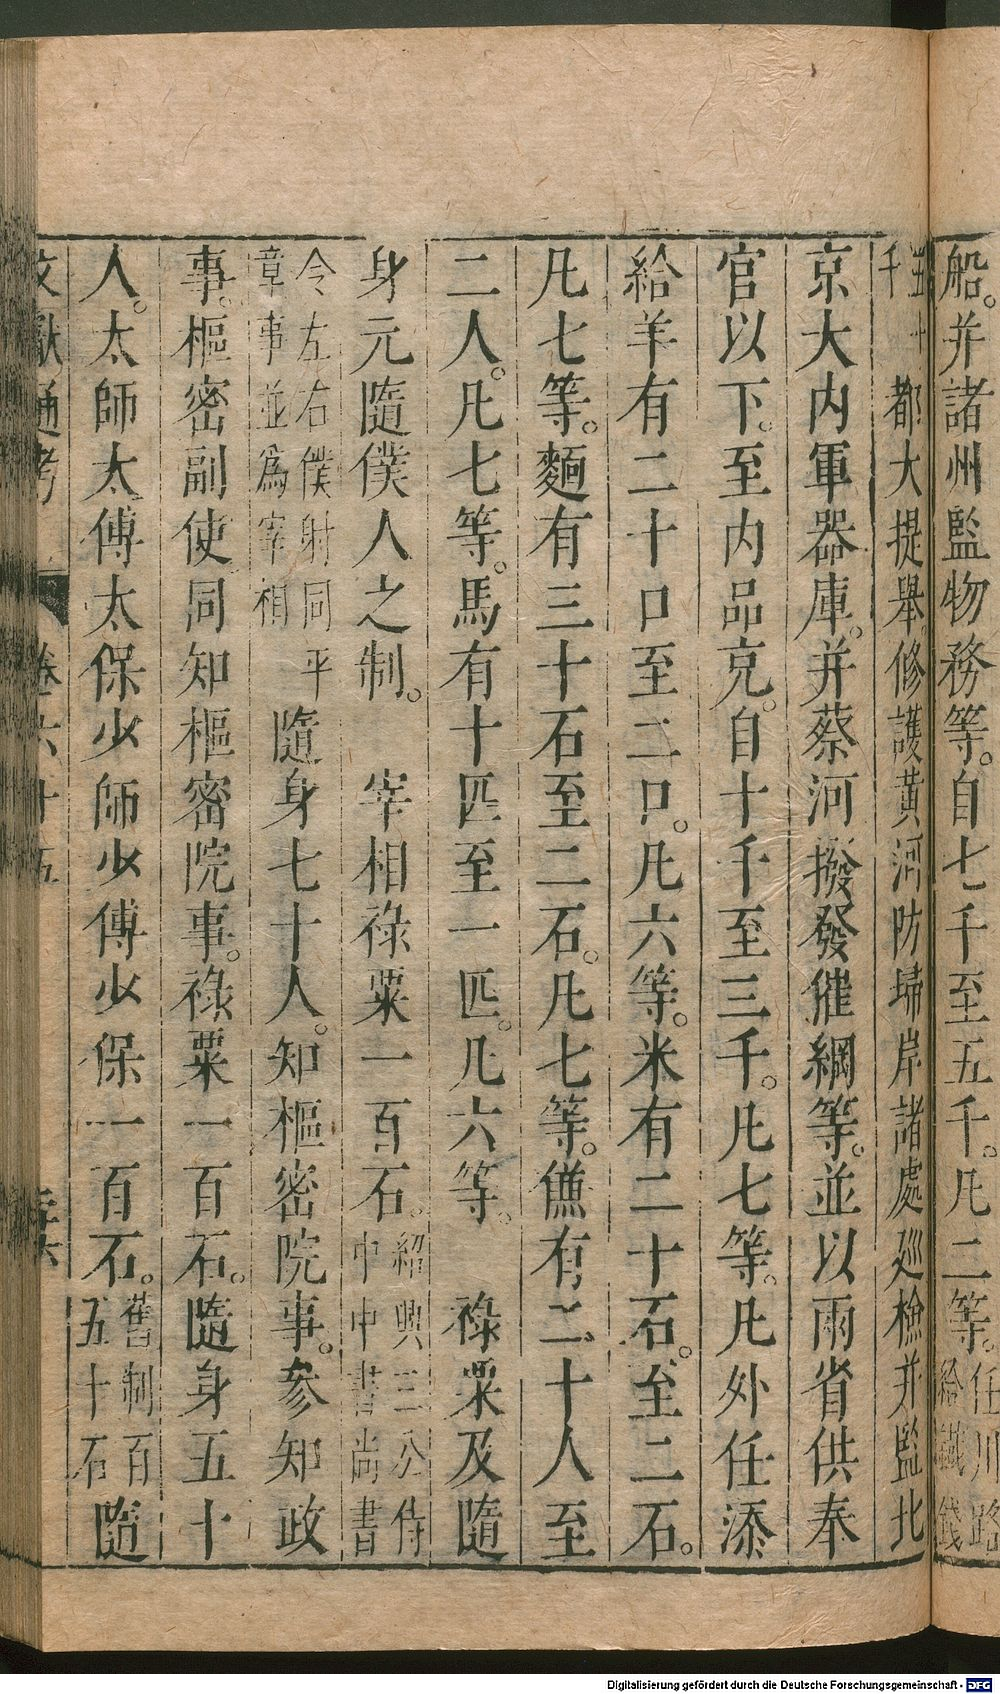 船。并諸州監物務等。自七千至五千。凡二等。任川路給鐵錢
五千都大提舉修護黃河防埽岸諸處廵檢并監北
京大内軍器庫。并蔡河撥發催綱等。並以兩省供奉
官以下。至内品充。自十千至三千。凡七等。凡外任添
給羊有二十口至二口。凡六等。米有二十石。至二石。
凡七等。麵有三十石至二石。凡七等。傔有二十人至
二人。凡七等。馬有十匹至一匹。凡六等。 祿粟及隨
身元隨僕人之制。 宰相祿粟一百石。紹興三公侍中中書尚書
令左右僕射同平章事並爲宰相隨身七十人。知樞密院事。參知政
事。樞密副使同知樞密院事。祿粟一百石。隨身五十
人。太師太傅太保少師少傅少保一百石。舊制百五十石隨
文獻通考 卷六十五
Digitalisierung gefördert durch die Deutsche Forschungsgemeinschaft - DFG